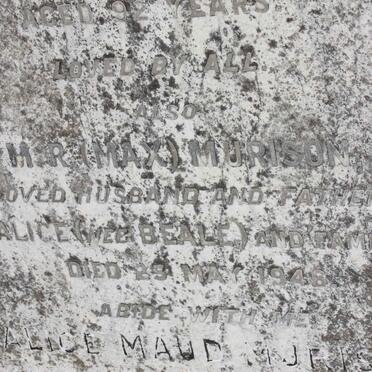 AGED 92 YEARS
LOVED BY ALL
ALSO
M R (MAX) MURISON
LOVED HUSBAND AND FATHER
ALICE (NEE BEALE) AND FAMI
DIED 29 MAY 1946
ABIDE WITH ME
ALICE MAUD MURIS